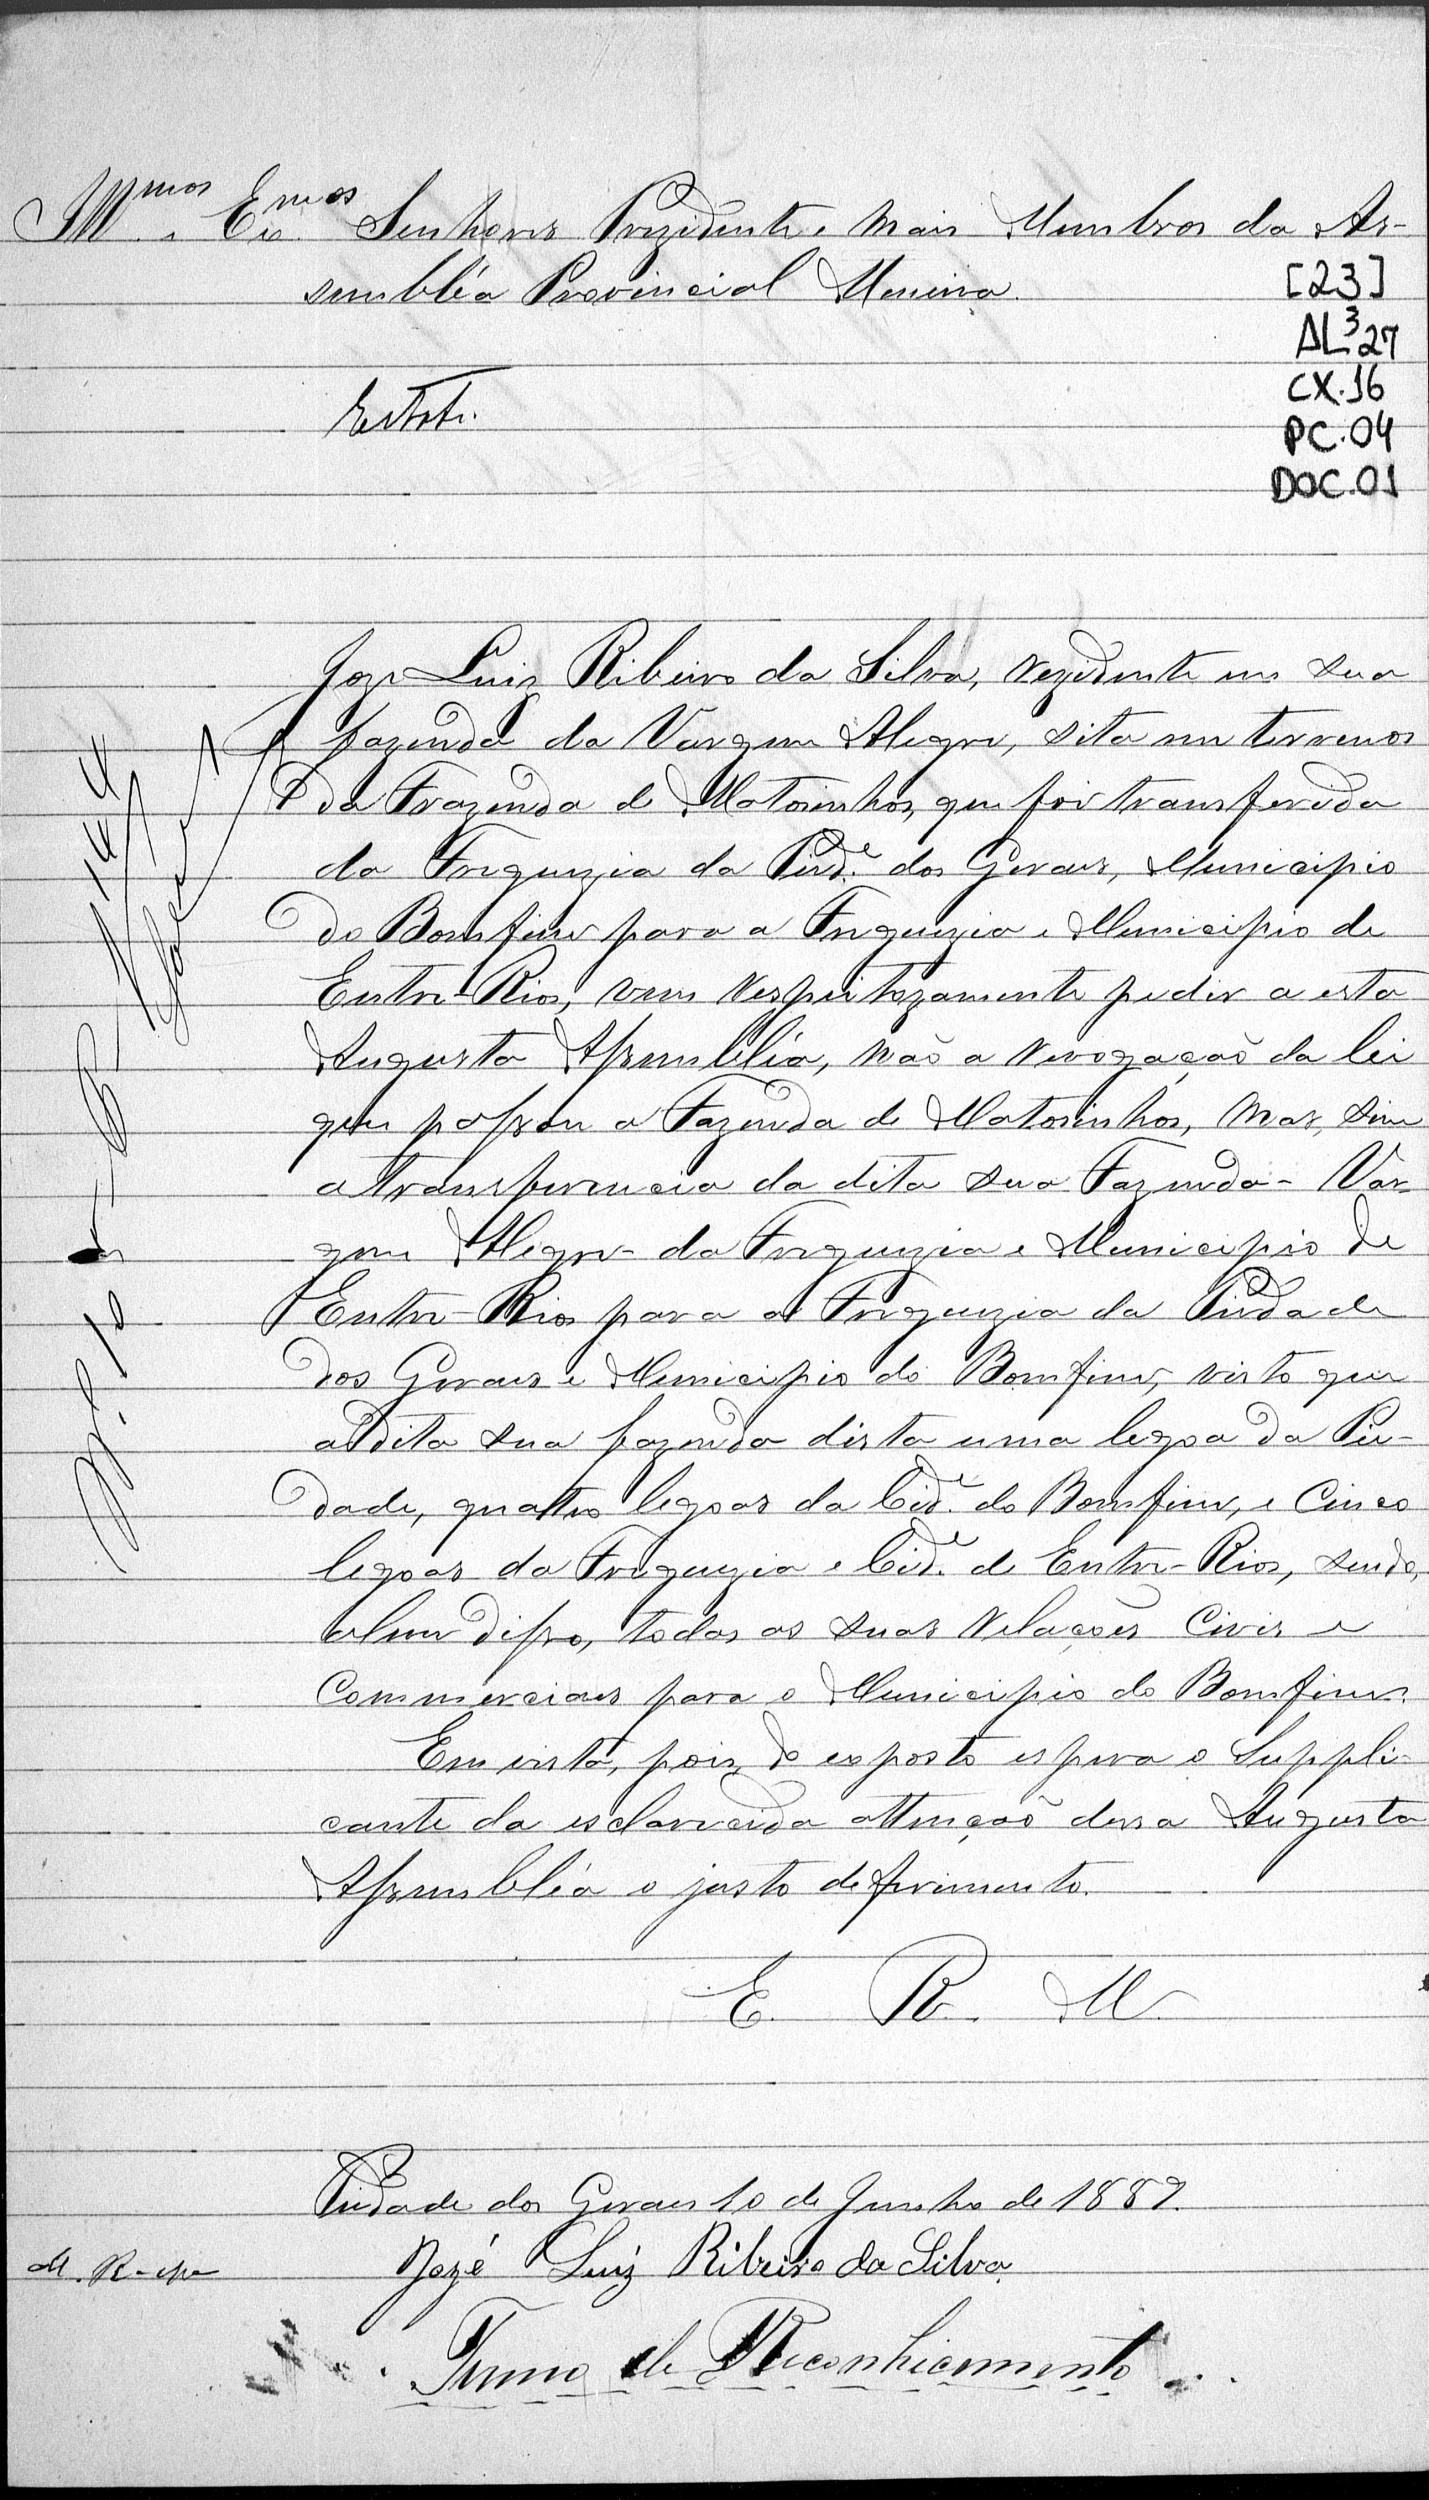 Ill.mos e Ex.mos Senhores Prezidente e mais Membros da As-
sembléa Provincial Mineira.
[23]
AL³27
CX.16
PC.04
DOC.01
Joze Luis Ribeiro da Silva, rezidente em sua
fazenda da Vargem Alegre, sita em terrenos
da Frazenda de Matosinhos, que foi transferida
da Freguezia da Pied.e dos Geraes, Municipio
do Bomfim para a Freguezia e Municipio de
Entre-Rios, vem respeitozamente pedir a esta
Augusta Assembléa, não a revogação da lei
que passou a Fazenda de Matosinhos, mas, sim
a transferencia da dita sua Fazenda - Var-
gem Alegre - da Freguezia e Municipio de
Entre-Rios para a Freguezia da Piedade
dos Geraes e Municipio do Bomfim, visto que
a dita sua fazenda dista uma legoa da Pie-
dade, quatro legoas da Cid.e do Bomfim, e cinco
legoas da Freguezia e Cid.e de Entre-Rios, sendo,
alem disso, todas as suas relações civis e
commerciaes para o Municipio do Bomfim.
Em vista, pois, do exposto espera o Suppli-
cante da esclarecida attenção dessa Augusta
Assembléa o justo deferimento.
E. R. M.
Piedade dos Geraes 10 de Junho de 1887.
Jozé Luiz Ribeiro da Silva
Termo de Reconhecimento